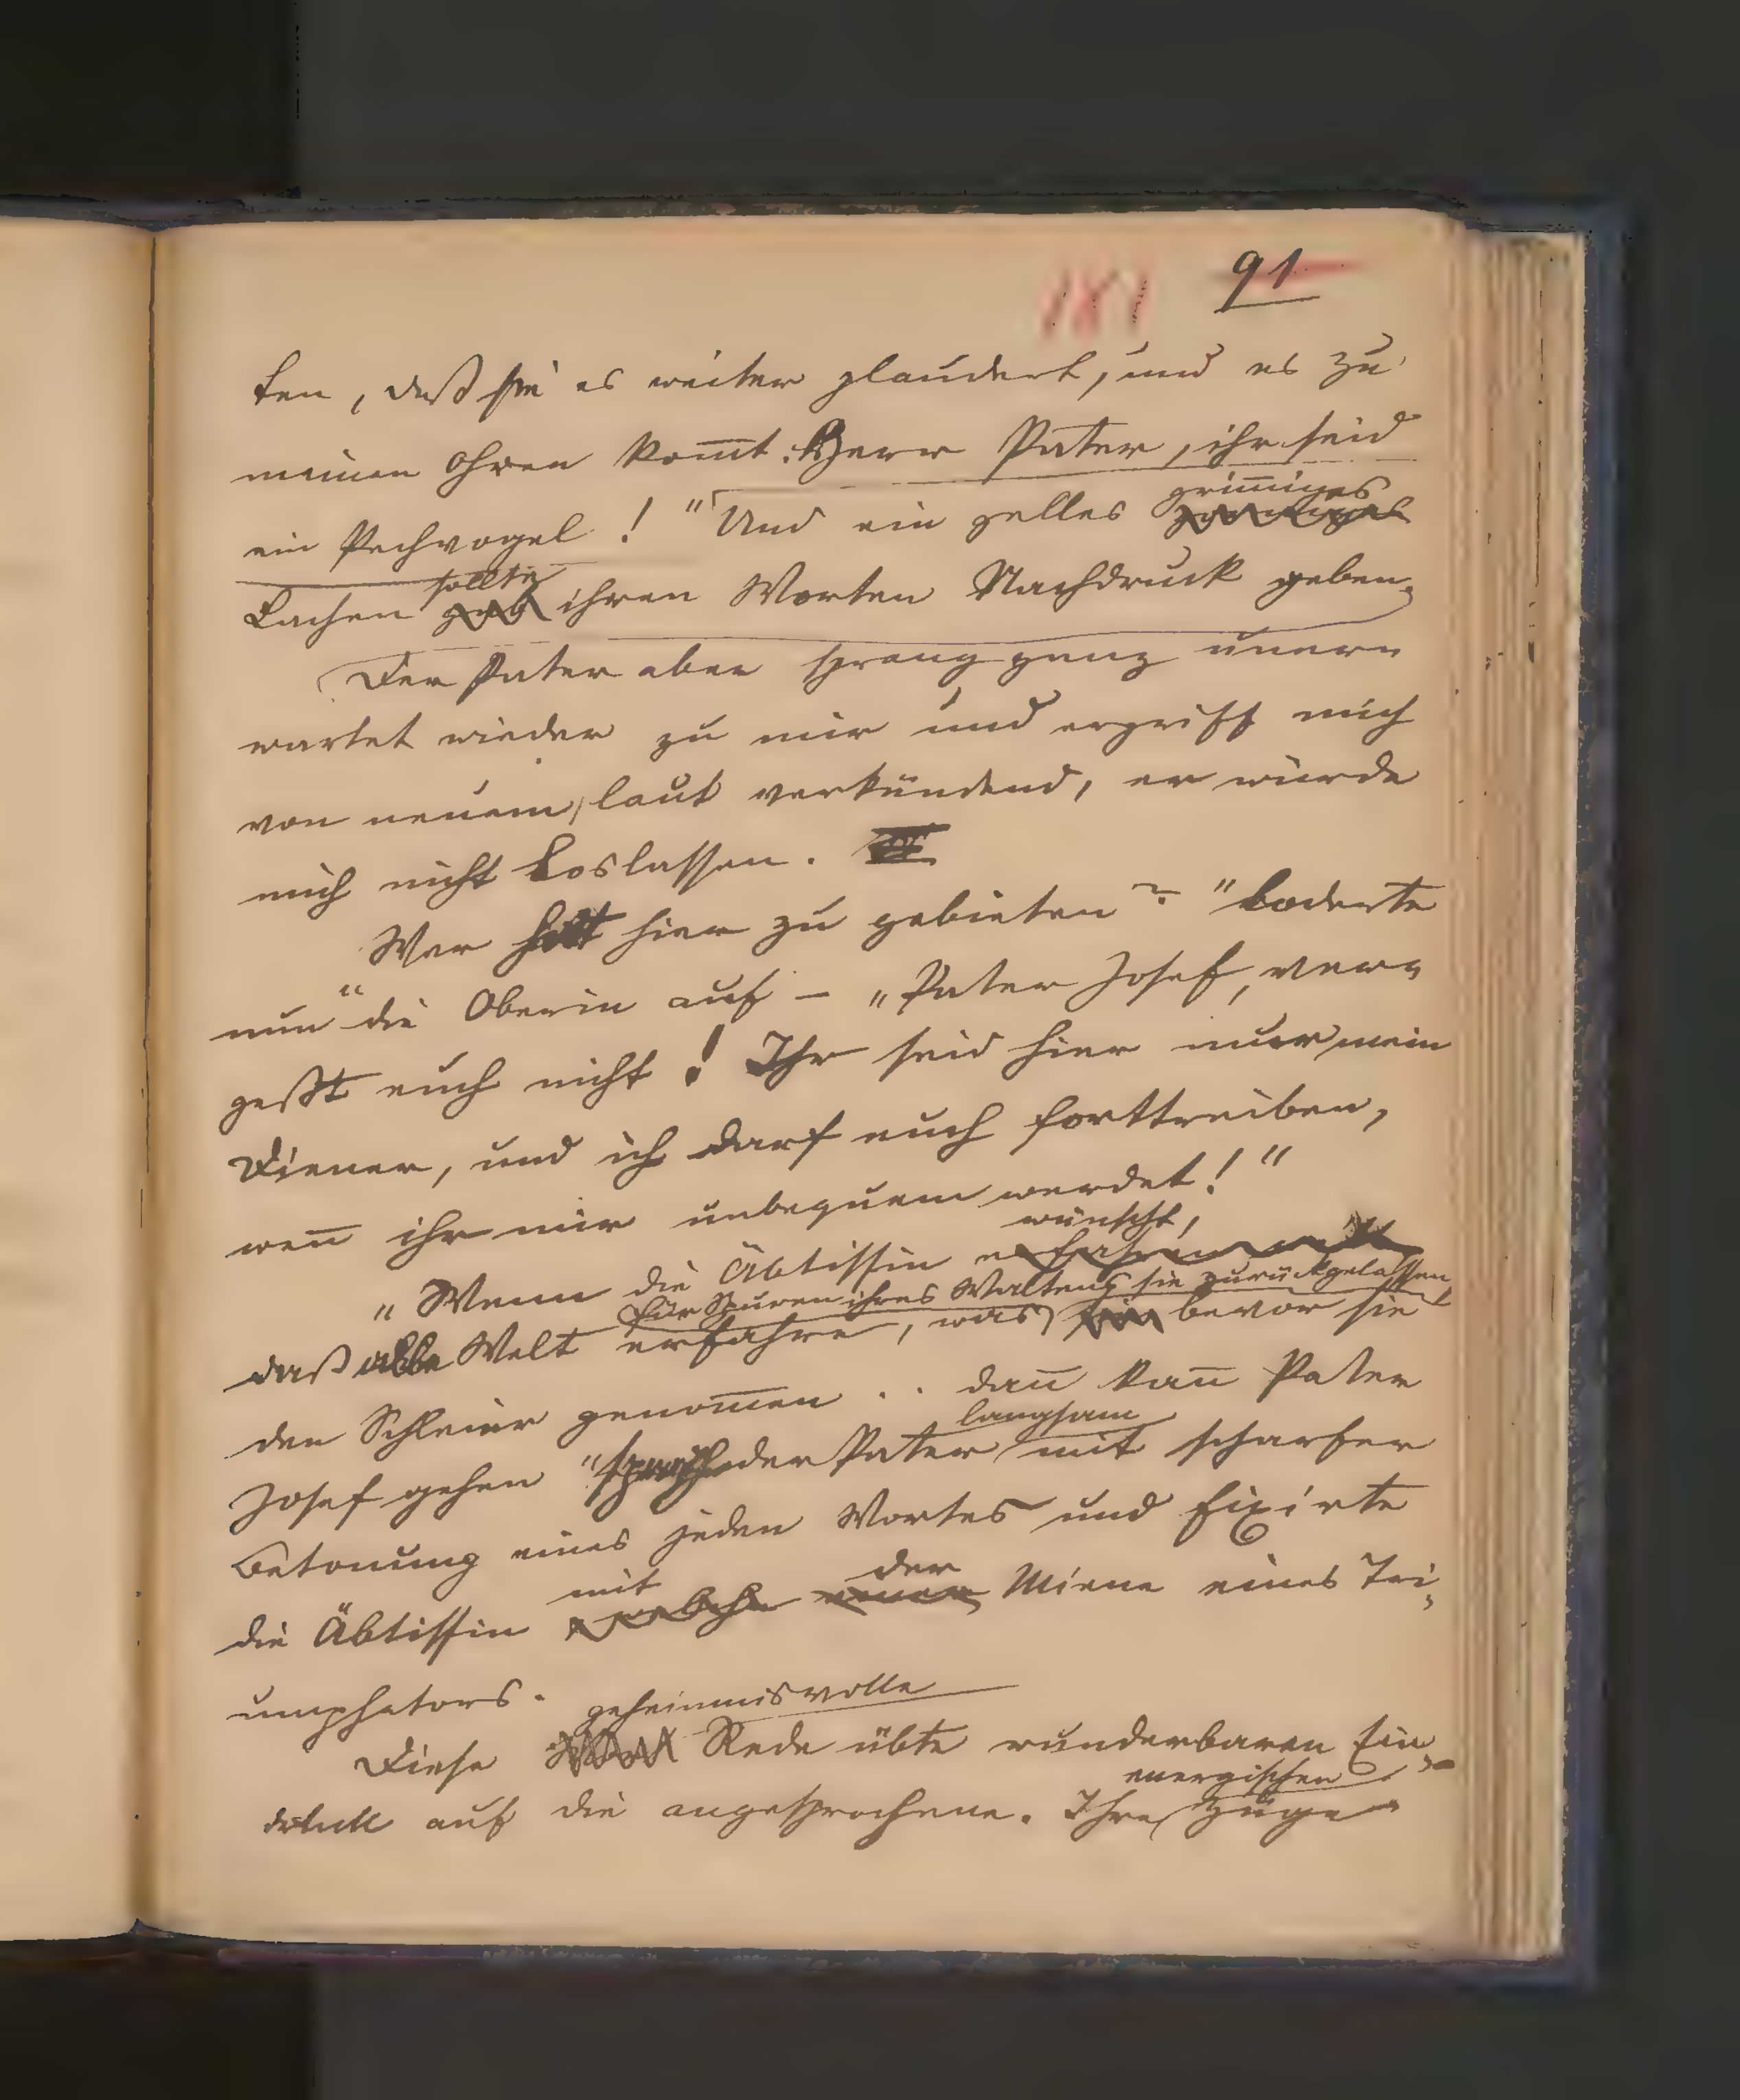 181 91
ten, daß sie es weiter plaudert, und es zu
meinen Ohren kom̅t. Herr Pater, ihr seid
ein Pechvogel! " Und ein gelles
grim̅iges
Lachen ihren Worten Nachdruck geben.
sollte
Der Pater aber sprang ganz uner=
wartet wieder zu mir und ergriff mich
von neuem, laut verkündend, er würde
mich nicht loslassen.
Wer hat hier zu gebieten? " loderte
nun die Oberin auf – „Pater Josef, ver=
geßt euch nicht! Ihr seid hier nur mein
Diener, und ich darf euch forttreiben,
wen̅ ihr mir unbequem werdet! "
wünscht,
„ Wenn die Äbtissin
für Spuren ihres Waltens sie zurückgelassen,
daß alle Welt erfahre, was bevor sie
den Schleier genom̅en . . dan̅ kan̅ Pater
langsam
Josef gehen " sprach der Pater mit scharfer
Betonung eines jeden Wortes und fixirte
mit der
die Äbtissin Miene eines Tri=
umphators.
geheimnisvolle
Diese Rede übte wunderbaren Ein=
energischen
druck auf die angesprochene. Ihre Züge